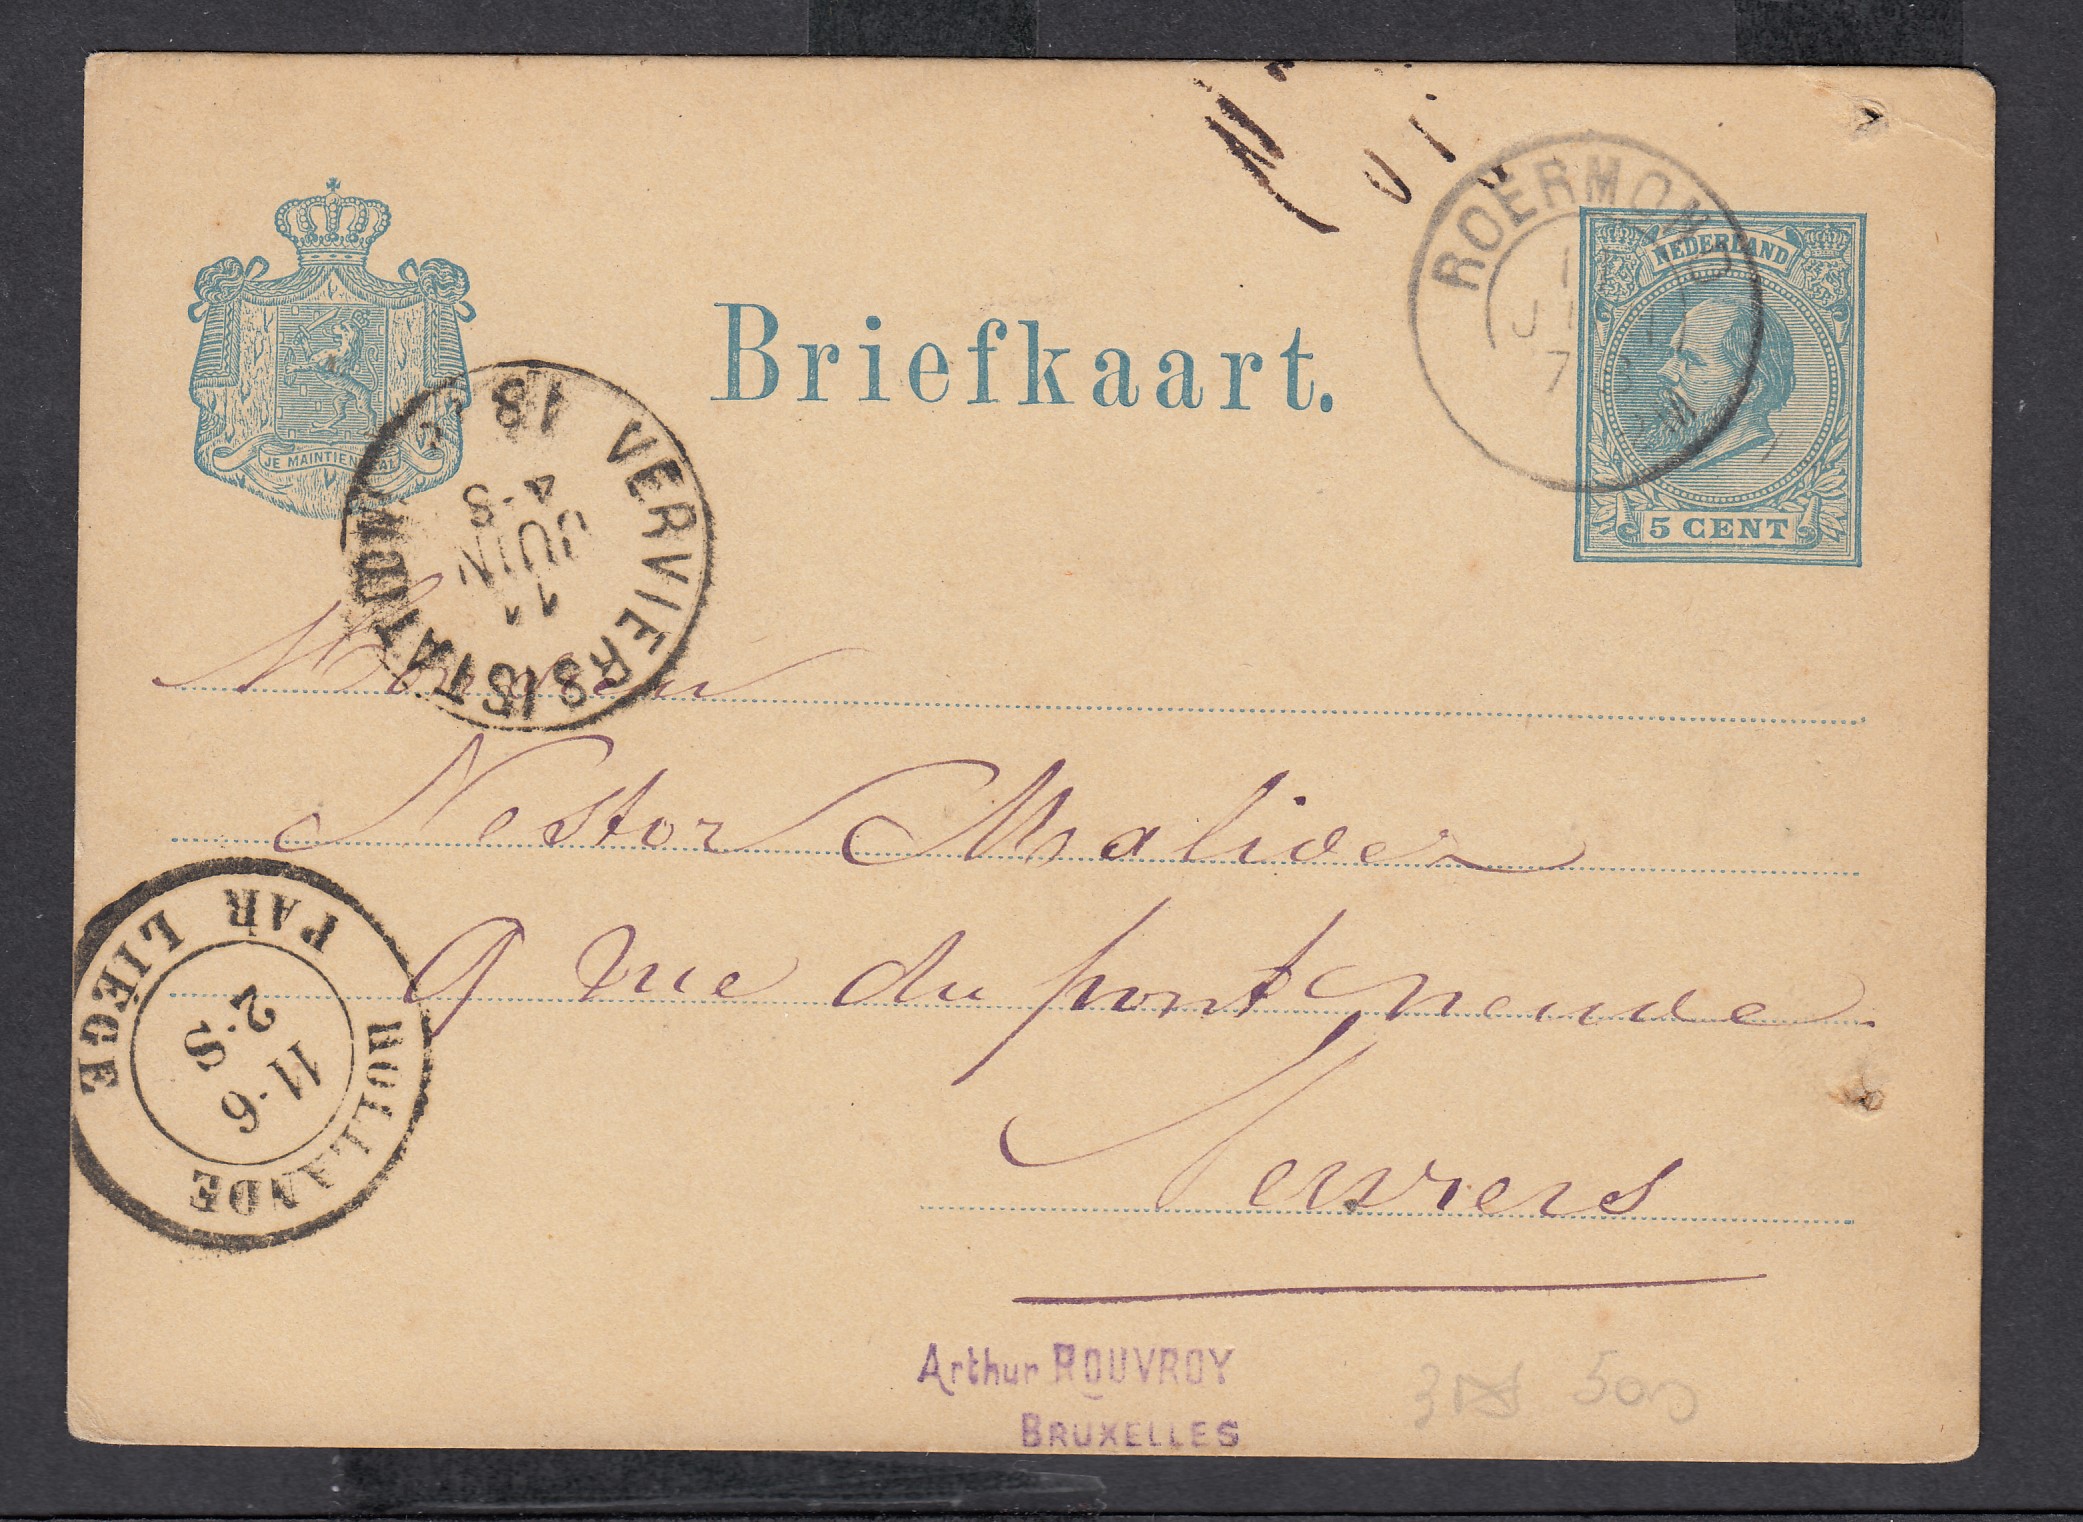 ROERMOND
JUN
78
NEDERLAND
5 CENT
JE MAINTIENDRAI
Briefkaart.
VERVIERS (STATION)
11
JUIN
4-S
18
Monsieur
Nestor Malivez
9 rue du pont neuve
Verviers
HOLLANDE
PAR LIÉGE
11-6
2·S
Arthur ROUVROY
BRUXELLES
500